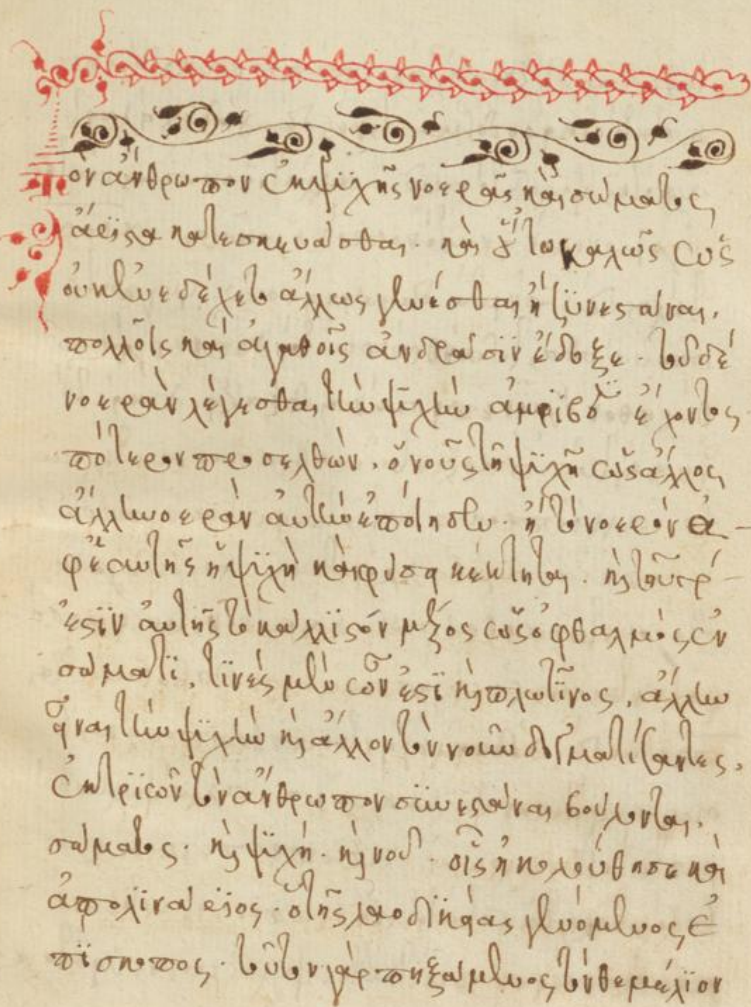 Τὸν ἄνθρωπον ἐκ ψυχῆς νοερᾶς καὶ σώματος
ἄριστα κατεσκευάσθαι· καὶ οὕτω καλῶς ὡς
οὐκ ἐνεδέχετο ἄλλως γενέσθαι ἢ συνεστάναι,
πολλοῖς καὶ ἀγαθοῖς ἀνδράσιν ἔδοξε· τὸ δὲ
νοερὰν λέγεσθαι τὴν ψυχὴν ἀμφιβολίαν ἔχοντος
πότερον προσελθὼν ὁ νοῦς τῇ ψυχῇ ὡς ἄλλος
ἄλλη νοερὰν αὐτὴν ἐποίησεν· ἢ τὸ νοερὸν ἀ-
φ' ἑαυτῆς ἡ ψυχὴ καὶ φύσει κέκτηται· καὶ τοῦτο
ἔστιν αὐτῆς τὸ κάλλιστον μέρος ὡς ὀφθαλμὸς ἐν
σώματι, τινὲς μὲν ὧν ἐστι καὶ πλωτῖνος, ἄλλην
εἶναι τὴν ψυχὴν καὶ ἄλλον τὸν νοῦν δογματίσαντες,
ἐκ τριῶν τὸν ἄνθρωπον συνεστάναι βούλονται·
σώματος· καὶ ψυχῆς· καὶ νοῦ· οἷς ἠκολούθησε καὶ
ἀπολινάριος· ὁ τῆς λαοδικείας γενόμενος ἐ
πίσκοπος· τοῦτον γὰρ πηξάμενος τὸν θεμέλιον